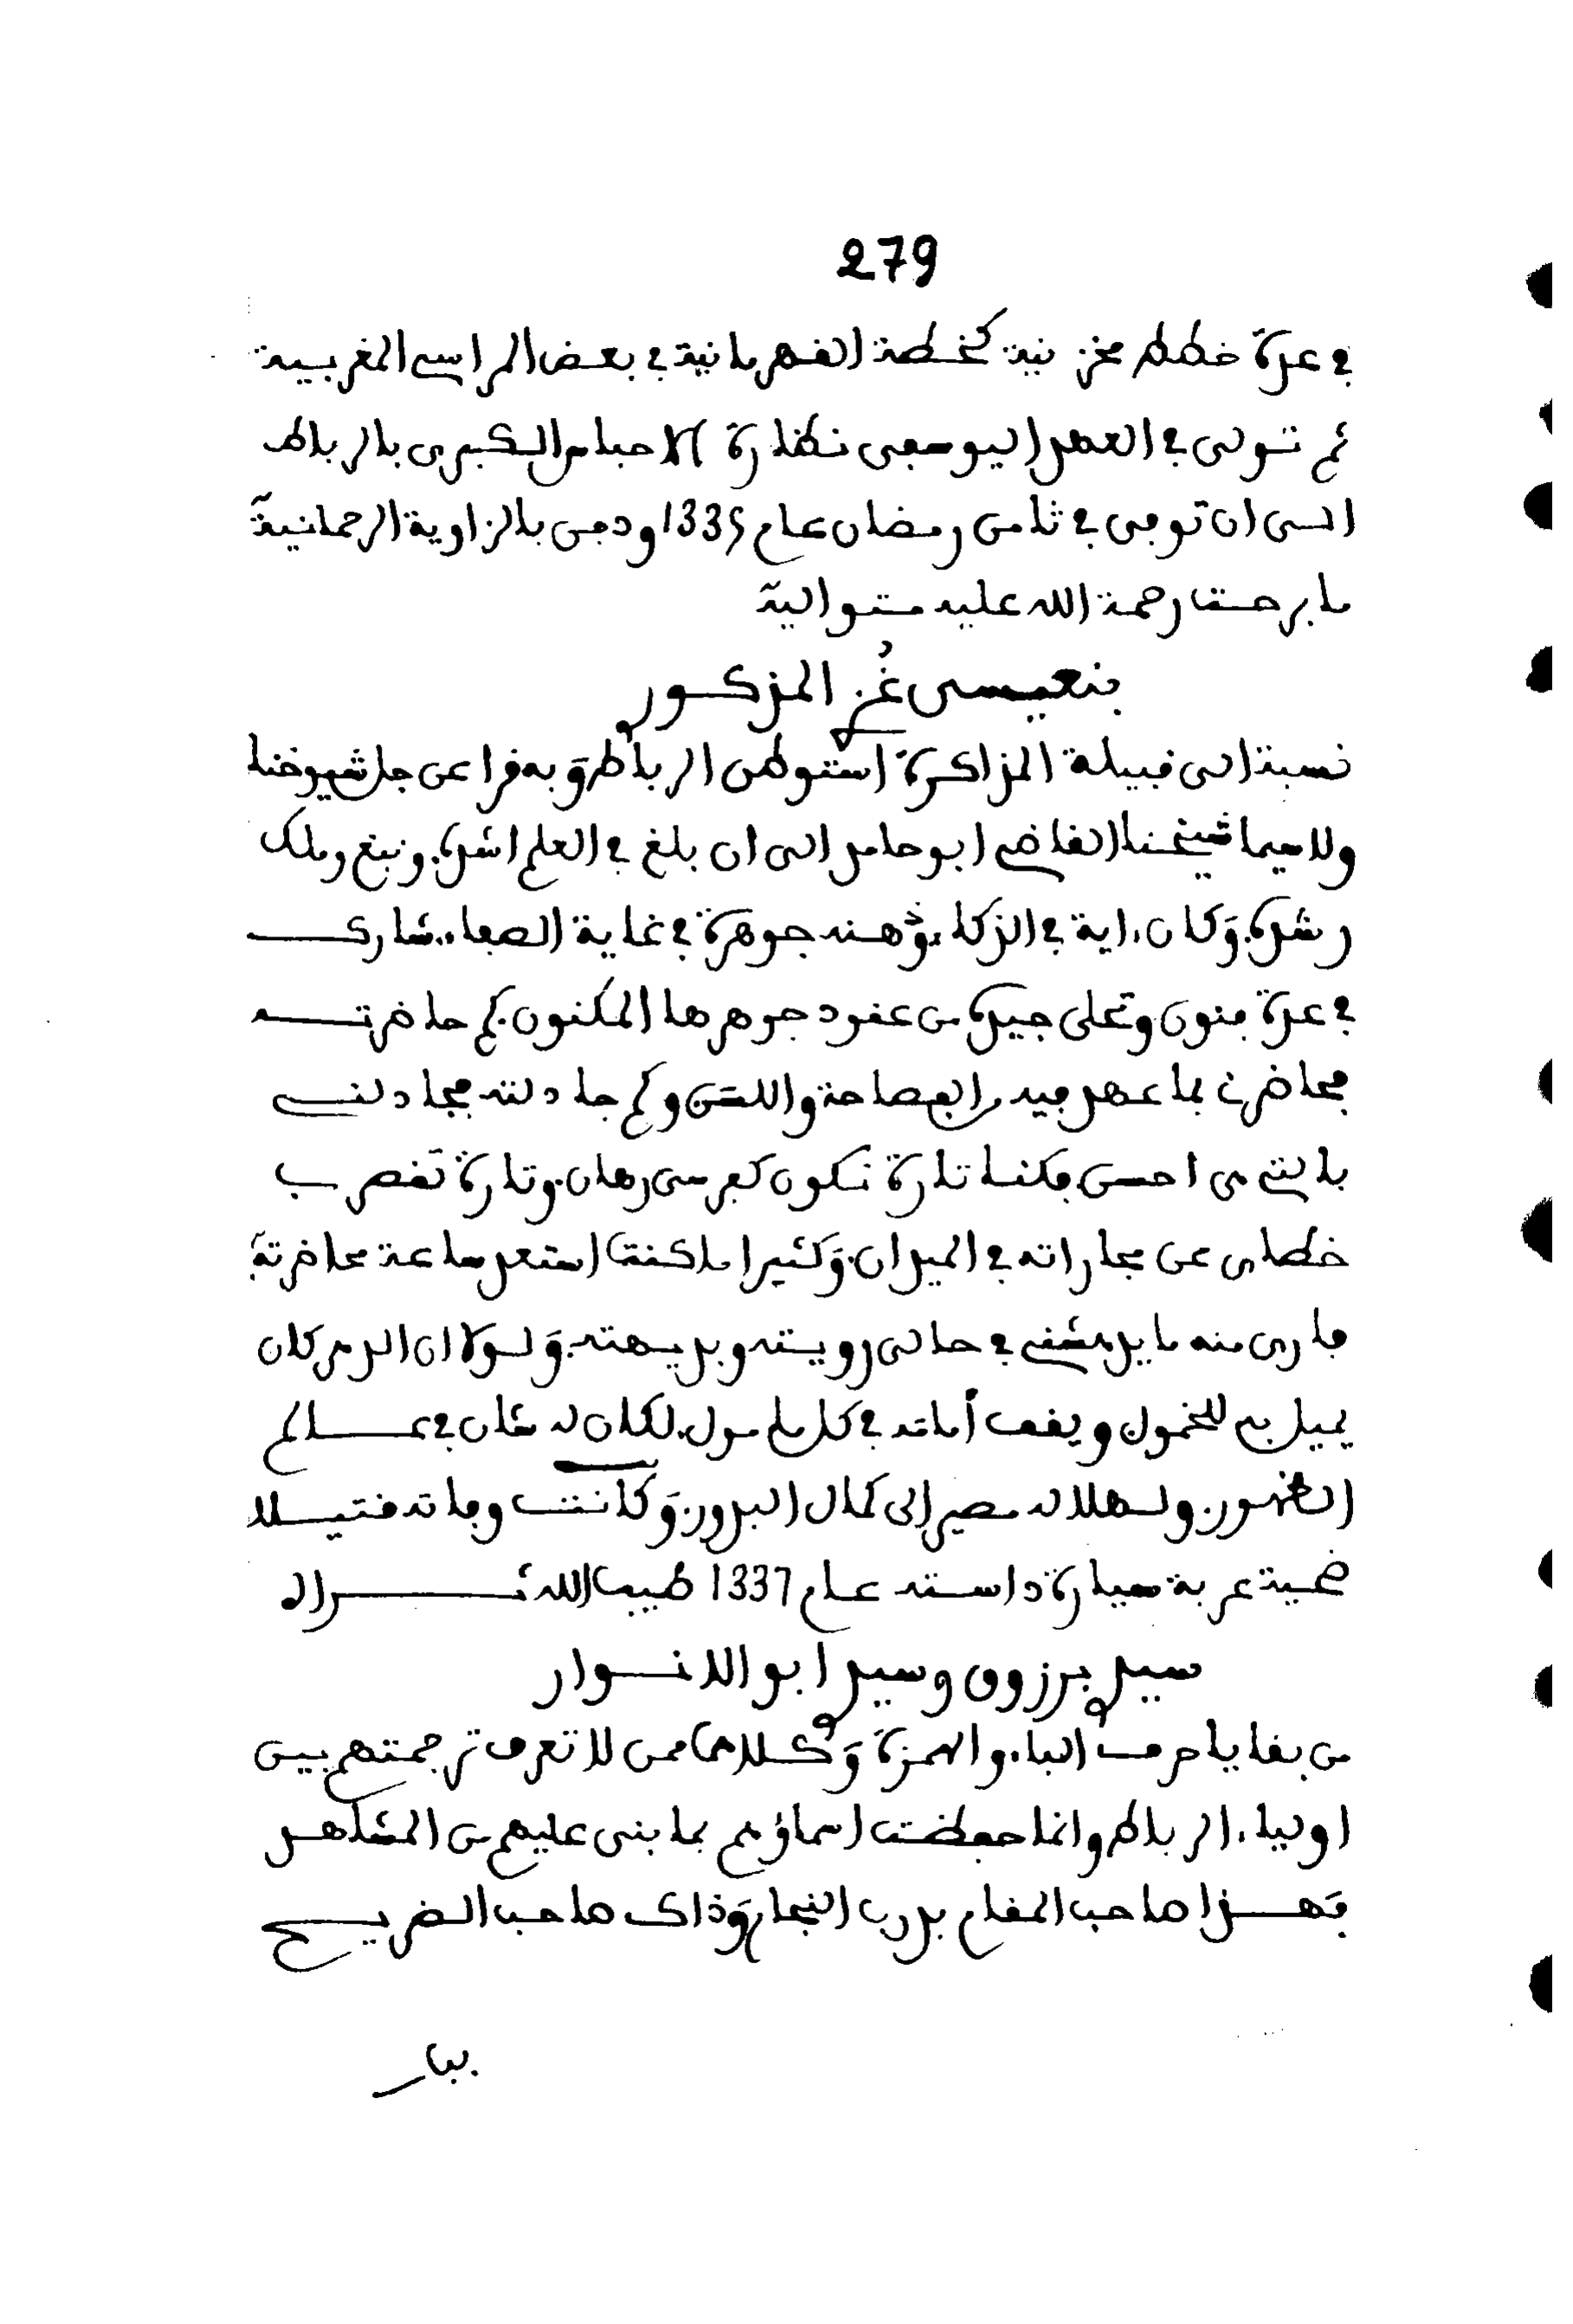 279
في عدة خطط مخزنية كخطة القهرمانية في بعض المراسي المغربية
ثم تولى في العهد اليوسفي نظارة الاحباس الكبرى بالرباط
الى ان توفي في ثامن رمضان عام 1335 ودفن بالزاوية الرحمانية
ما برحت رحمة الله عليه متوالية
بنعيسى غُز المذكور
نسبة الى قبيلة المذاكرة استوطن الرباط وبه قرا عن جل شيوخنا
ولاسيما شيخنا القاضي ابو حامد الى ان بلغ في العلم اشده. ونبغ وملك
رشده. وكان ءاية في الذكاء. وذهنه جوهرة في غاية الصفاء. شارك
في عدة فنون وتحلى جيده من عقود جوهرها المكنون. كم حاضرته
محاضرة بما عهد فيه من الفصاحة واللسن وكم جادلته مجادلة
بالتي هي احسن فكنا تارة نكون كفرسي رهان. وتارة تقصر ب
خطاي عن مجاراته في الميدان. وكثيرا ما كنت استعد ساعة محاضرته
فارى منه ما يدهشني في حالى رويته وبديهته. ولولا ان الدهر كان
يميل به للخمول ويقف أمامه في كل مامول. لكان له شان في عالم
الظهور. ولهلاله مصير إلى كمال البدور. وكانت وفاته قتيلا
ضحية عربة سيارة داسته عام 1337 طيب الله ثراه
سيد برزوق وسيد ابو الانوار
من بقايا حرف الباء. والهمزة وكلاهما ممن لا تعرف ترجمتهم بين
اولياء. الرباط وانما حفظت اسماؤهم بما بنى عليهم من المشاهد
فهذا صاحب المقام بدرب النجار وذاك صاحب الضريح